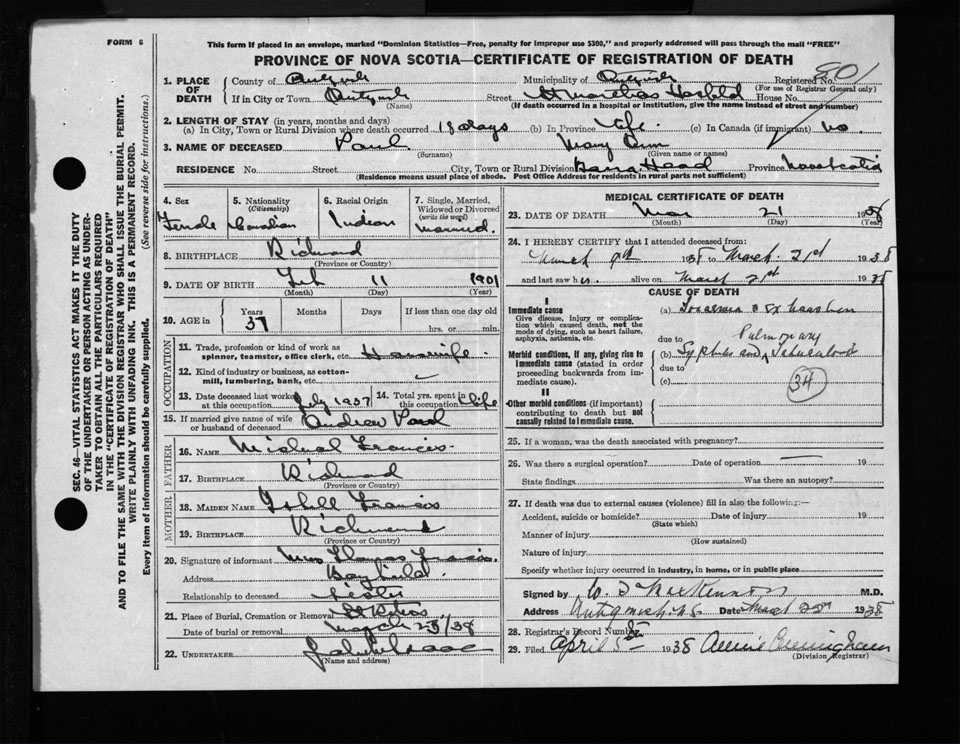 FORM 6
This form if placed in an envelope, marked "Dominion Statistics—Free, penalty for improper use $300," and properly addressed will pass through the mail "FREE"
PROVINCE OF NOVA SCOTIA—CERTIFICATE OF REGISTRATION OF DEATH
801
1. PLACE OF DEATH
County of
Municipality of
Registered No.
(For use of Registrar General only)
If in City or Town
(Name)
Street St Marthas Hospital House No.
(If death occurred in a hospital or institution, give the name instead of street and number)
2. LENGTH OF STAY (in years, months and days)
(a) In City, Town or Rural Division where death occurred 13 days (b) In Province Life (c) In Canada (if immigrant) no.
3. NAME OF DECEASED Paul Mary Ann
(Surname) (Given name or names)
RESIDENCE No. Street City, Town or Rural Division Barra Head Province Nova Scotia
(Residence means usual place of abode. Post Office Address for residents in rural parts not sufficient)
4. Sex
Female
5. Nationality
(Citizenship)
Canadian
6. Racial Origin
Indian
7. Single, Married, Widowed or Divorced
(write the word)
Married.
8. BIRTHPLACE Richmond
(Province or Country)
9. DATE OF BIRTH Feb 11 1901
(Month) (Day) (Year)
10. AGE in
Years Months Days If less than one day
37 hrs. or min.
OCCUPATION
11. Trade, profession or kind of work as spinner, teamster, office clerk, etc. Housewife.
12. Kind of industry or business, as cotton-mill, lumbering, bank, etc.
13. Date deceased last worked at this occupation July 1937
14. Total yrs. spent in this occupation Life
15. If married give name of wife or husband of deceased Andrew Paul
FATHER
16. NAME Michael Francis
17. BIRTHPLACE Richmond
(Province or Country)
MOTHER
18. MAIDEN NAME Francis
19. BIRTHPLACE Richmond
(Province or Country)
20. Signature of informant Mrs Thomas Francis
Address Bayfield.
Relationship to deceased Sister
21. Place of Burial, Cremation or Removal St Peters
Date of burial or removal March 23/38
22. UNDERTAKER John Isaac
(Name and address)
MEDICAL CERTIFICATE OF DEATH
23. DATE OF DEATH Mar 21 1938
(Month) (Day)
24. I HEREBY CERTIFY that I attended deceased from:
March 9th 1938 to March 21st 1938
and last saw her alive on March 21st 1938
CAUSE OF DEATH
I
Immediate cause
Give disease, injury or complication which caused death, not the mode of dying, such as heart failure, asphyxia, asthenia, etc.
(a) Toxaemia & Exhaustion
due to
Morbid conditions, if any, giving rise to immediate cause (stated in order proceeding backwards from immediate cause).
Pulmonary
(b) Syphilis and
due to
(c)
34
II
Other morbid conditions (if important) contributing to death but not causally related to immediate cause.
25. If a woman, was the death associated with pregnancy?
26. Was there a surgical operation? Date of operation 19
State findings Was there an autopsy?
27. If death was due to external causes (violence) fill in also the following:—
Accident, suicide or homicide? Date of injury 19
(State which)
Manner of injury
(How sustained)
Nature of injury
Specify whether injury occurred in industry, in home, or in public place
Signed by M.D.
Address Antigonish N S Date March 22nd 1938
28. Registrar's Record Number
29. Filed April 5th 1938 Annie Cunningham
(Division Registrar)
SEC. 46—VITAL STATISTICS ACT MAKES IT THE DUTY OF THE UNDERTAKER OR PERSON ACTING AS UNDERTAKER TO OBTAIN ALL THE PARTICULARS REQUIRED IN THE "CERTIFICATE OF REGISTRATION OF DEATH" AND TO FILE THE SAME WITH THE DIVISION REGISTRAR WHO SHALL ISSUE THE BURIAL PERMIT.
WRITE PLAINLY WITH UNFADING INK. THIS IS A PERMANENT RECORD.
Every item of information should be carefully supplied. (See reverse side for instructions.)